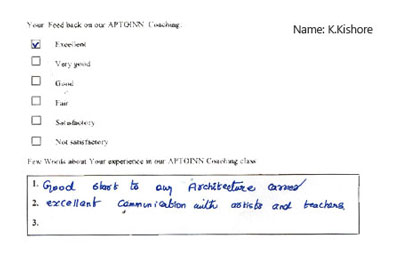 Your Feed back on our APTQINN Coaching.
Name: K.Kishore
Excellent
Very good
Good
Fair
Satisfactory
Not satisfactory
Few Words about Your experience in our APTQINN Coaching class
1. Good start to my Architecture career
2. excellent communication with artists and teachers
3.